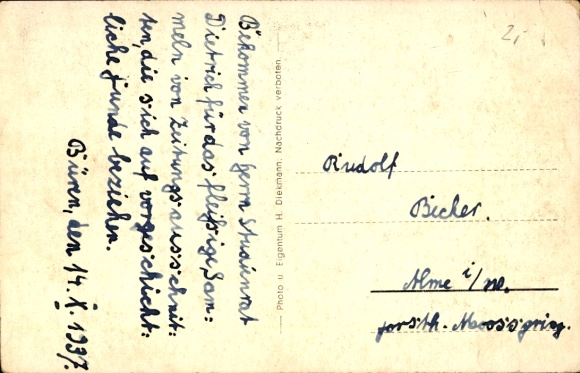 Bekommen von Herrn Studienrat
Dietrich für das fleißige Sam:
meln von Zeitungsausschnit:
ten, die sich auf vorgeschicht:
liche Funde beziehen.
Büren, den 14. X. 1937.
Photo u. Eigentum H. Diekmann. Nachdruck verboten.
2,-
Rudolf
Bicher.
Alme i/W.
Forsth.